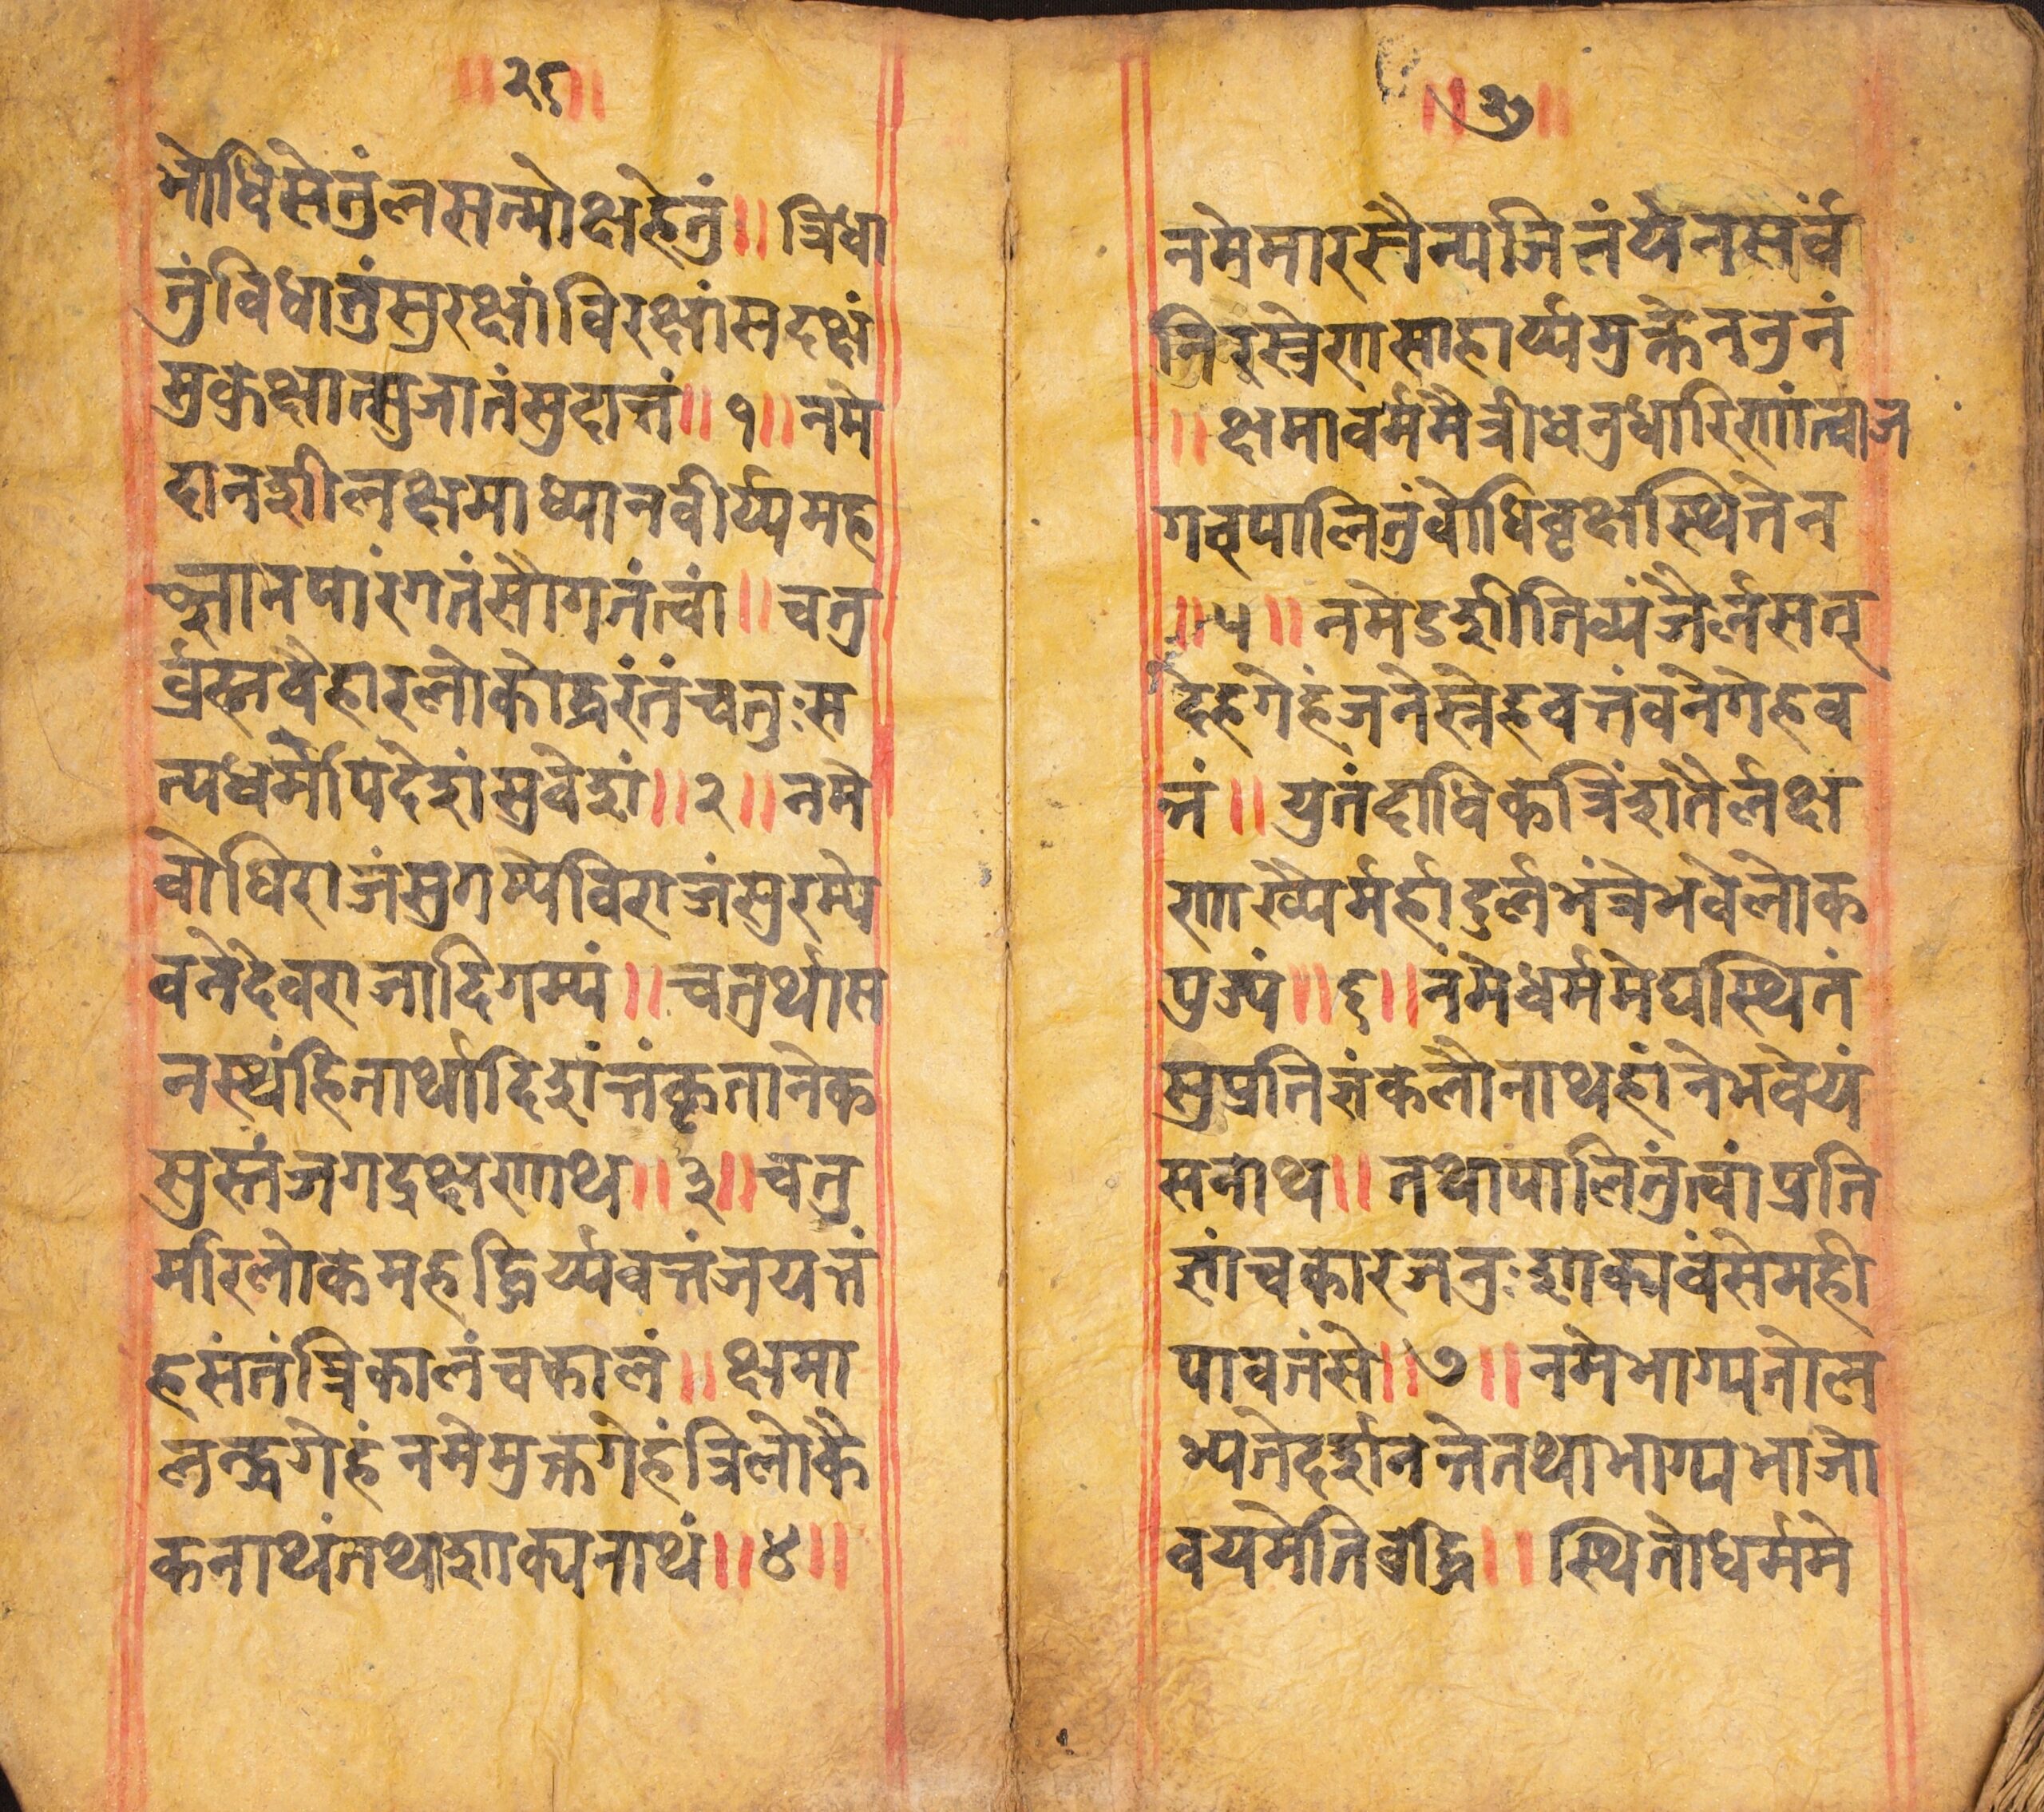 ॥२६॥
भोधिसेतुंलसन्मोक्षहेतुं॥त्रिधा
तुंविधातुंसुरक्षांविरक्षांसदक्षं
मुक्रक्षात्मुजातंमुदात्तं॥१॥नमे
दानशीलक्षमाध्यानवीर्य्यमह
ज्ञानपारंगतंसौगतंत्वां॥चतु
र्व्रह्मवैहारलोकोद्धरंतंचतुःस
त्यधर्मोपदेशंसुवेशं॥२॥नमे
वोधिराजंसुगम्येविराजंसुरम्ये
वनेदेवराजादिगम्यं॥चतुर्थास
नस्थंहितार्थादिशंत्तंकृतानेक
सुस्तंजगद्रक्षणाथ॥३॥चतु
र्मारलोकमहद्विर्य्यवत्तंजयत्तं
हसंतंत्रिकालंचकालं॥क्षमा
लब्धगेहंनमेमुक्तगेहंत्रिलोकै
कनाथंतथाशाक्यनाथं॥४॥
नमेमारसैन्यजितंयेनसर्वं
निरुस्त्रेणसाहार्य्यमुक्तेननुनं
॥क्षमावर्ममैत्रीधनुधारिणांत्वाज
गत्पालितुंवोधिवृक्षस्थितेन
॥५॥नमेऽशीतिव्यंजैर्लसत्
देहगेहंजनेस्नेहवत्तंवनेगेहव
त्तं॥युतंदाधिकत्रिंशतैर्लक्ष
णाख्यैर्महादुर्लभंत्रेभवेलोक
पुज्यं॥६॥नंमेधर्ममेघस्थितं
सुप्रतिज्ञंकलौनाथहानेभवेयं
सनाथ॥तथापालितुंत्वांप्रति
ज्ञांचकारजनुःशाक्यवंसेमही
पावतंसे॥७॥नमेभाग्यतोल
भ्यतेदर्शनन्तेतथाभाग्यभाजो
वयमेतिवोद्धि॥स्थितोधर्ममे